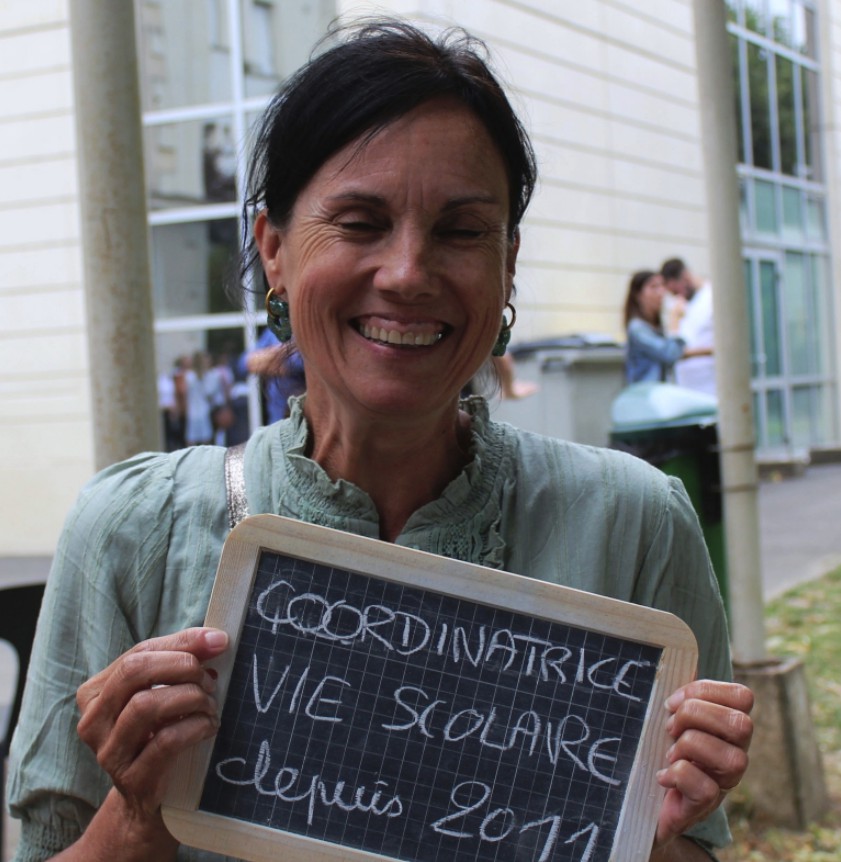 COORDINATRICE
VIE SCOLAIRE
depuis 2011